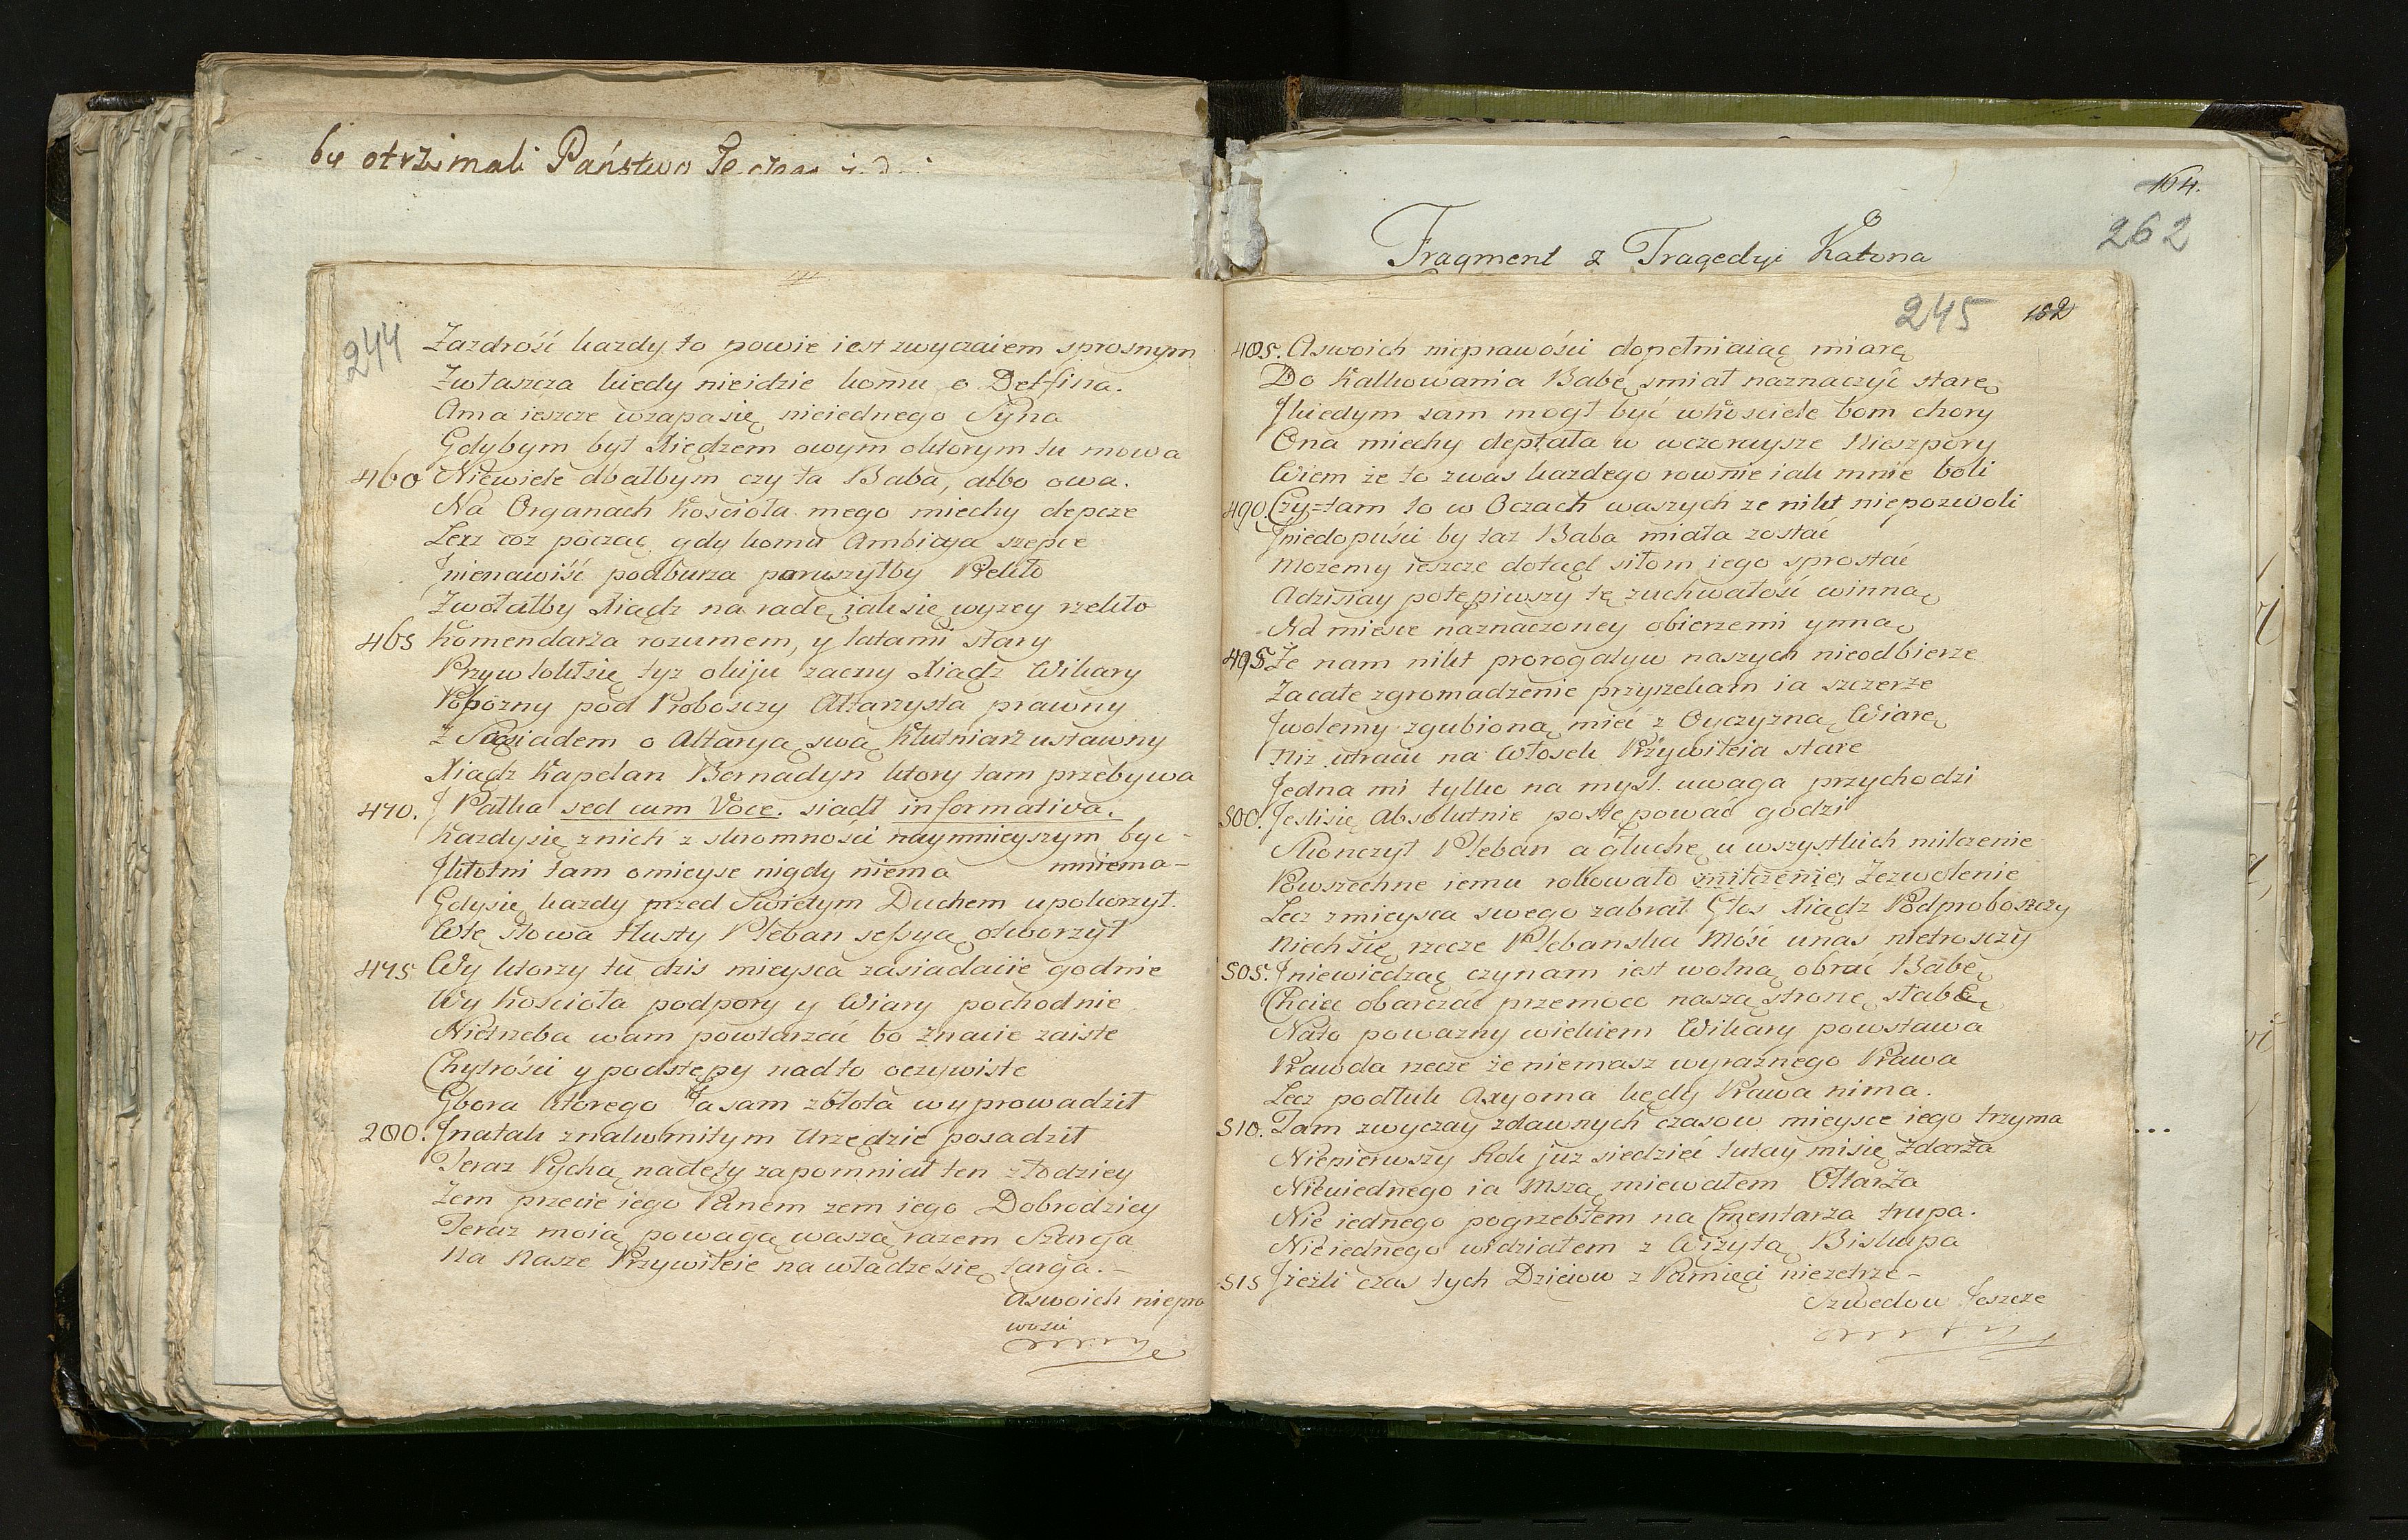 być otrzimali Państwo
244
Zazdrość kazdy to powie iest zwyczaiem sprosnym
Zwłaszcza kiedy nieidzie komu o Delfina.
Ama ieszcze wzapasię nieiednego Syna
Gdybym był Xiędzem owym oktorym tu mowa
460 Niewiele dbałbym czy ta Baba, albo owa.
Na Organach Kościoła mego miechy depcze
Lecz coz począć gdy komu Ambicya szepce
Jnienawiść podburza poruszyłby Piekło
Zwołałby Xiądz na radę iak się wyzey rzekło
465 Komendarza rozumem, y latami stary
Przywlokł się tyz okiju zacny Xiądz Wikary
Pobozny pod Proboszczy Altarzysta prawny
Z Sąsiadem o Altaryą swą Kłutniarz ustawny
Xiądz Kapelan Bernadyn ktory tam przebywa
470. J Patka sed cum Voce. siadł informativa.
Kazdysię znich z skromnosci naymnieyszym być -
Jkłotni tam omieysc nigdy niema mniema -
Gdysię kazdy przed Swiętym Duchem upokorzył.
Wtę słowa tłusty Pleban sessyą otworzył
475 Wy ktorzy tu dzis mieysca zasiadacie godnie
Wy Kościoła podpory y Wiary pochodnie
Nietrzeba wam powtarzać bo znacie zaiste
Chytrości y podstępy nadto oczywiste
Gbora ktorego ia sam zbłota wyprowadził
280. Jnatak znakomitym Urzędzie posadził
Teraz Pychą nadęty zapomniał ten złodziey
Zem przecie iego Panem zem iego Dobrodziey
Teraz moią powagą waszą razem Szarga
Na Nasze Przywileie na władze się targa. -
Aswoich niepra
wosci
164.
262
Fragment z Tragedyi Katona
245 182
485. Aswoich nieprawości dopełniaiąc miarę
Do Kalkowania Babę smiał naznaczyć starę
Jkiedym sam mogł być wKosciele bom chory
Ona miechy deptała w wczoraysze Nieszpory
Wiem że to zwas kazdego rownie iak mnie boli
490. Czy=tam to w Oczach waszych ze nikt niepozwoli
Jniedopuści by taz Baba miała zostać
Mozemy ieszcze dotąd siłom iego sprostać
Adzisiay potępiwszy tę zuchwałość winną
Na miesce naznaczoney obierzemi ynną
495. Ze nam nikt prorogatyw naszych nieodbierze
Zacałe zgromadzenie przyrzekam ia szczerze
Jwolemy zgubioną mieć z Oyczyzną Wiarę
Niz utracić na Włosek Przywileia stare
Jedna mi tylko na mysl. uwaga przychodzi
500. Jeslisię Absolutnie postępować godzi
Skonczył Pleban a głuche u wszystkich milczenie
Powszechne iemu rokowało milczenie, Zezwolenie
Lecz zmieysca swego zabrał Głos Xiądz Podproboszczy
Niech się rzecze Plebanska Mość unas nietroszczy
505. Jniewiedząc czynam iest wolną obrać Babę
Chcieć obarczać przemocą naszą stronę słabą
Nato powazny wiekiem Wikary powstawa
Prawda rzecze że niemasz wyraźnego Prawa
Lecz podług Axyoma kędy Prawa nima.
510. Tam zwyczay zdawnych czasow mieysce iego trzyma
Niepierwszy Rok juz siedzieć tutay misię zdarza
Nieiednego ia Mszą miewałem Ołtarza
Nie iednego pogrzebłem na Cmentarza trupa.
Nieiednego widziałem z Wizytą Biskupa
515 Jiezli czas tych Dzieiow z Pamięci niezetrze -
Szwedow Jeszcze